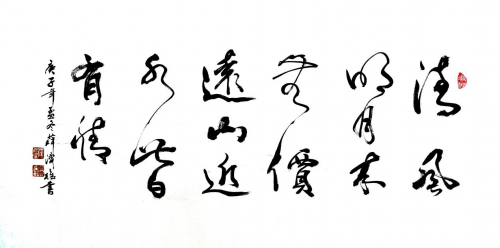 清風
明月本
無價
遠山近
水皆
有情
庚子年孟冬薛書